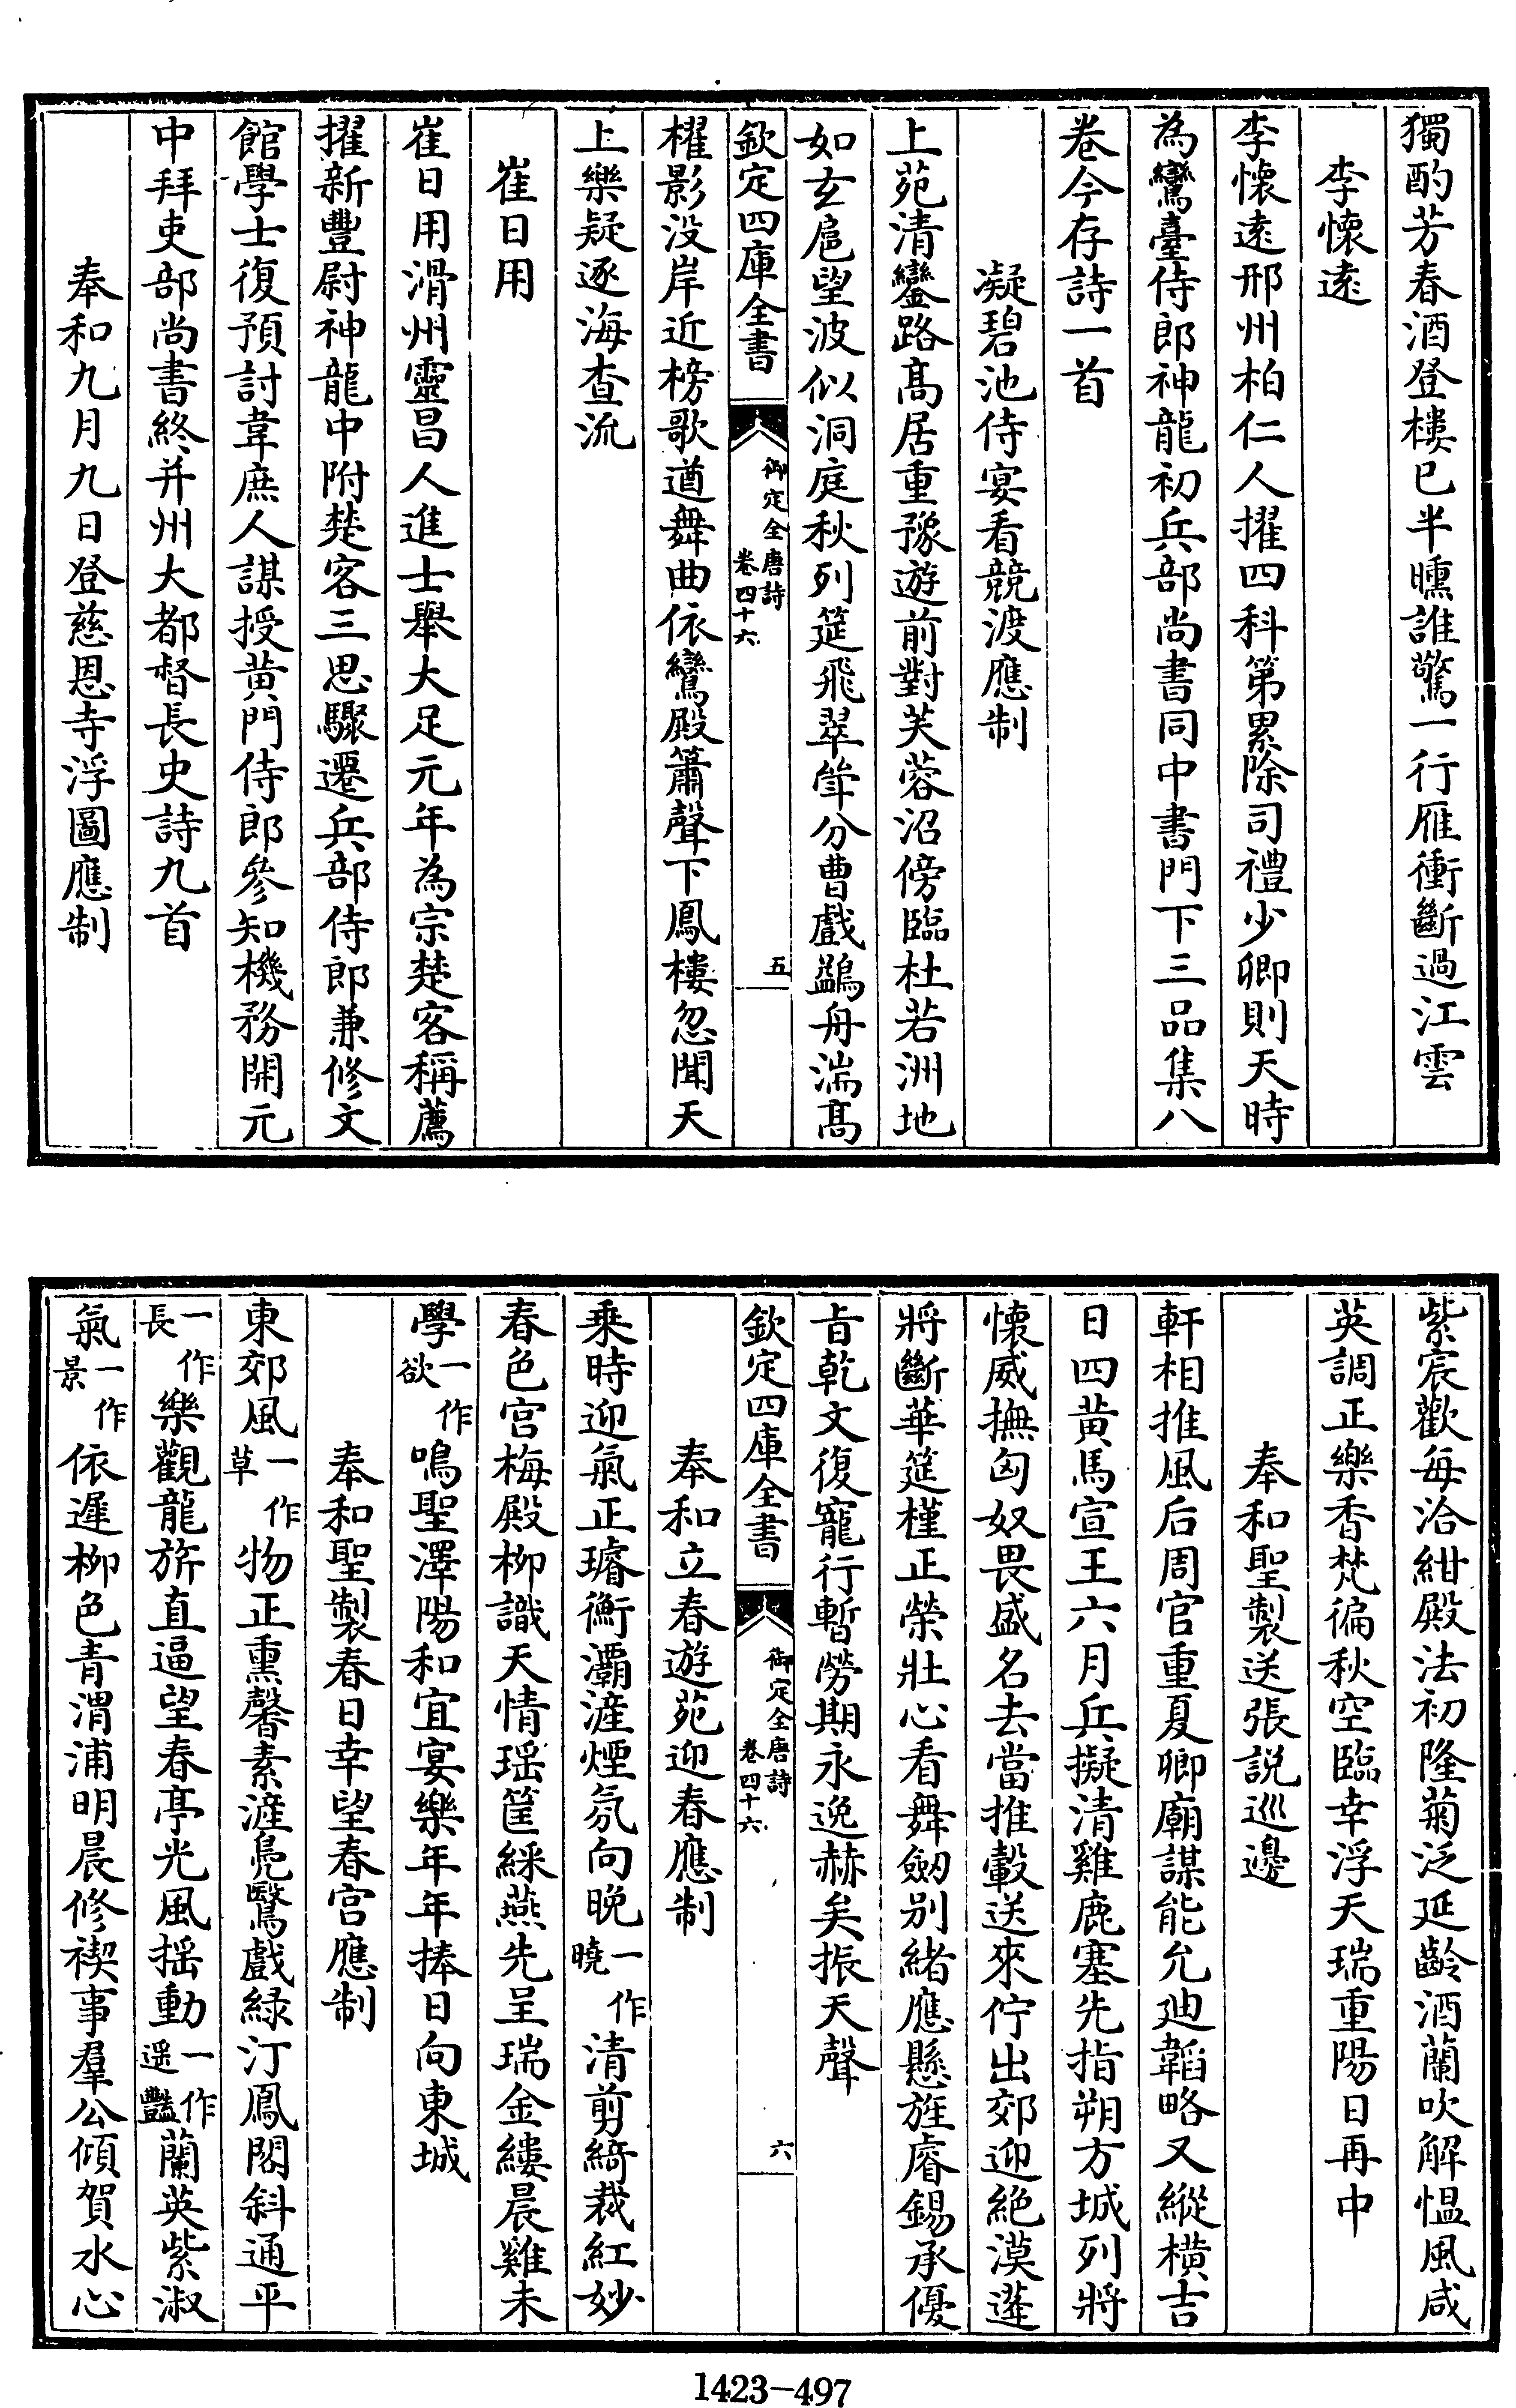 獨酌芳春酒登樓已半曛誰驚一行雁衝斷過江雲
李懷遠
李懷遠邢州柏仁人擢四科第累除司禮少卿則天時
為鸞臺侍郎神龍初兵部尚書同中書門下三品集八
卷今存詩一首
凝碧池侍宴看競渡應制
上苑清鑾路高居重豫遊前對芙蓉沼傍臨杜若洲地
如玄扈望波似洞庭秋列筵飛翠斝分曹戲鷁舟湍高
欽定四庫全書
御定全唐詩
卷四十六
五
櫂影没岸近榜歌遒舞曲依鸞殿簫聲下鳳樓忽聞天
上樂疑逐海查流
崔日用
崔日用滑州靈昌人進士舉大足元年為宗楚客稱薦
擢新豐尉神龍中附楚客三思驟遷兵部侍郎兼修文
館學士復預討韋庶人謀授黄門侍郎參知機務開元
中拜吏部尚書終并州大都督長史詩九首
奉和九月九日登慈恩寺浮圖應制
紫宸歡每洽紺殿法初隆菊泛延齡酒蘭吹解愠風咸
英調正樂香梵徧秋空臨幸浮天瑞重陽日再中
奉和聖製送張說巡邊
軒相推風后周官重夏卿廟謀能允迪韜略又縱橫吉
日四黄馬宣王六月兵擬清雞鹿塞先指朔方城列將
懷威撫匈奴畏盛名去當推轂送來佇出郊迎絶漠蓬
將斷華筵槿正榮壯心看舞劒别緒應懸旌睿錫承優
旨乾文復寵行暫勞期永逸赫矣振天聲
欽定四庫全書
御定全唐詩
卷四十六
六
奉和立春遊苑迎春應制
乗時迎氣正璿衡灞滻煙氛向晚一作曉清剪綺裁紅妙
春色宫梅殿柳識天情瑶筐綵燕先呈瑞金縷晨雞未
學一作欲鳴聖澤陽和宜宴樂年年捧日向東城
奉和聖製春日幸望春宫應制
東郊風一作草物正熏馨素滻鳧鷖戲緑汀鳳閣斜通平
一作長樂觀龍旂直逼望春亭光風揺動一作遥豔蘭英紫淑
氣一作景依遲柳色青渭浦明晨修禊事羣公傾賀水心
1423-497